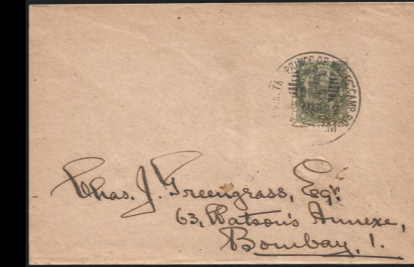 PRINCE OF WALES' CAMP
Chas. J. Greengrass, Esqr.
63, Watson's Annexe,
Bombay, 1.